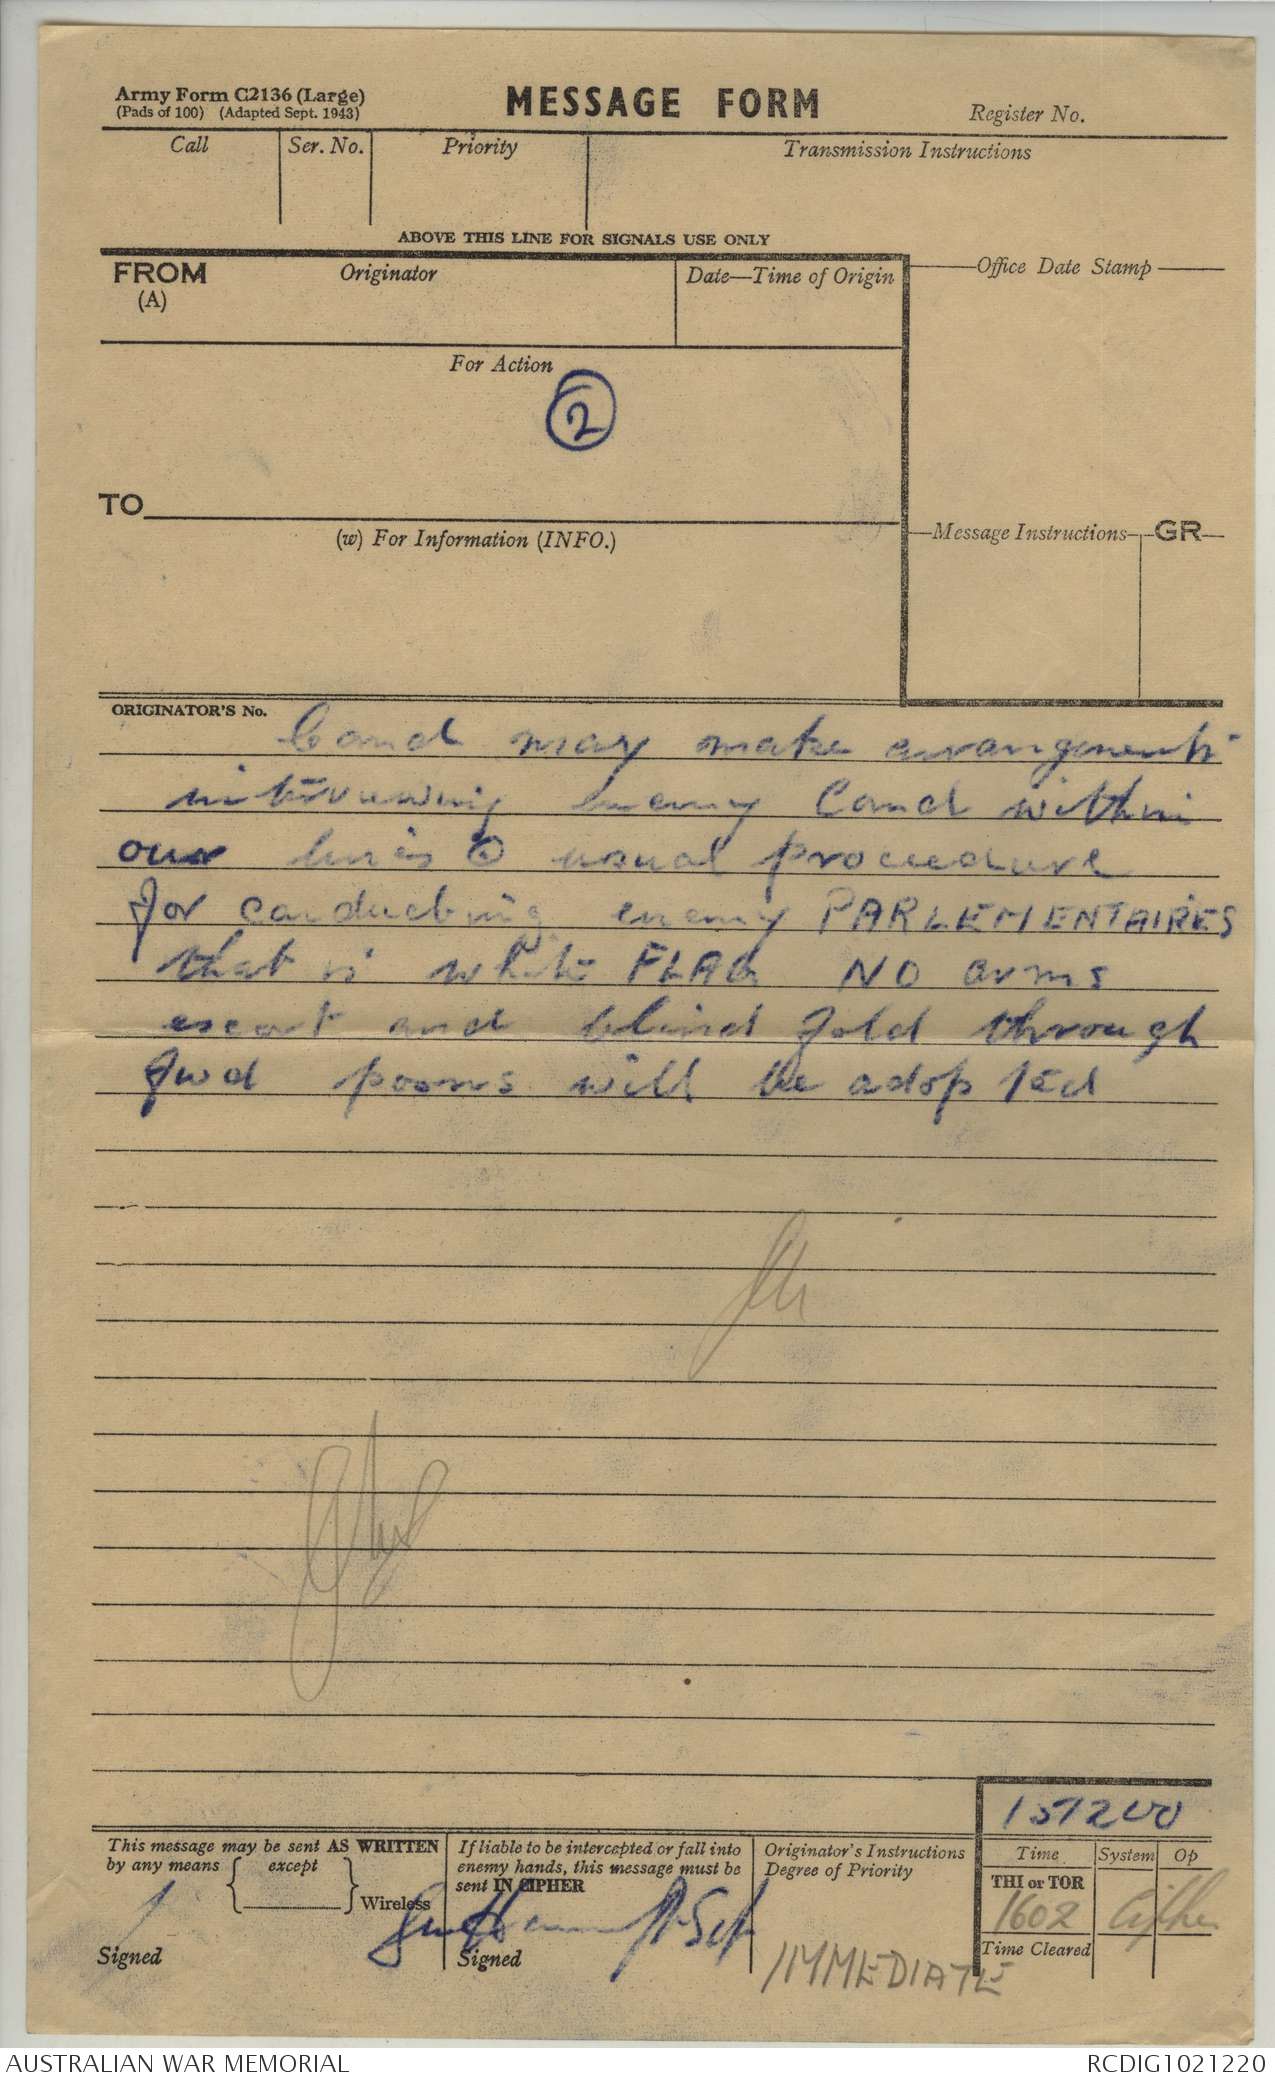 Army Form C2136 (Large)
(Pads of 100) (Adapted Sept. 1943)
MESSAGE FORM
Register No.
Call
Ser. No.
Priority
Transmission Instructions
ABOVE THIS LINE FOR SIGNALS USE ONLY
FROM
(A)
Originator
Date—Time of Origin
Office Date Stamp
For Action
2
TO
(w) For Information (INFO.)
Message Instructions
GR
ORIGINATOR'S No.
Comd may make arrangements
interviewing enemy Comd within
our lines usual proceedure
for conducting enemy PARLEMENTAIRES
that is white FLAG NO arms
escort and blind fold through
fwd posns will be adopted
151200
This message may be sent AS WRITTEN
by any means except
Wireless
Signed
If liable to be intercepted or fall into
enemy hands, this message must be
sent IN CIPHER
Signed
Originator's Instructions
Degree of Priority
IMMEDIATE
Time
System
Op
THI or TOR
1602
Cipher
Time Cleared
AUSTRALIAN WAR MEMORIAL
RCDIG1021220